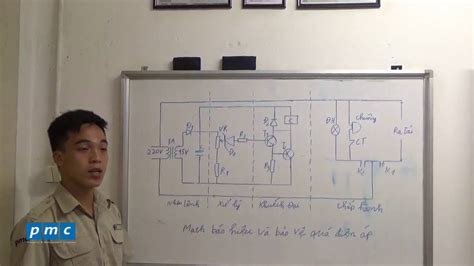 Đ1
BA
220V
15V
VR
R1
R2
Đ2
R3
T1
T2
ĐH
Chuông
CT
Ra tải
K
K1
Nhận lệnh
Xử lý
Khuếch Đại
Chấp hành
Mạch báo hiệu và bảo vệ quá điện áp
pmc